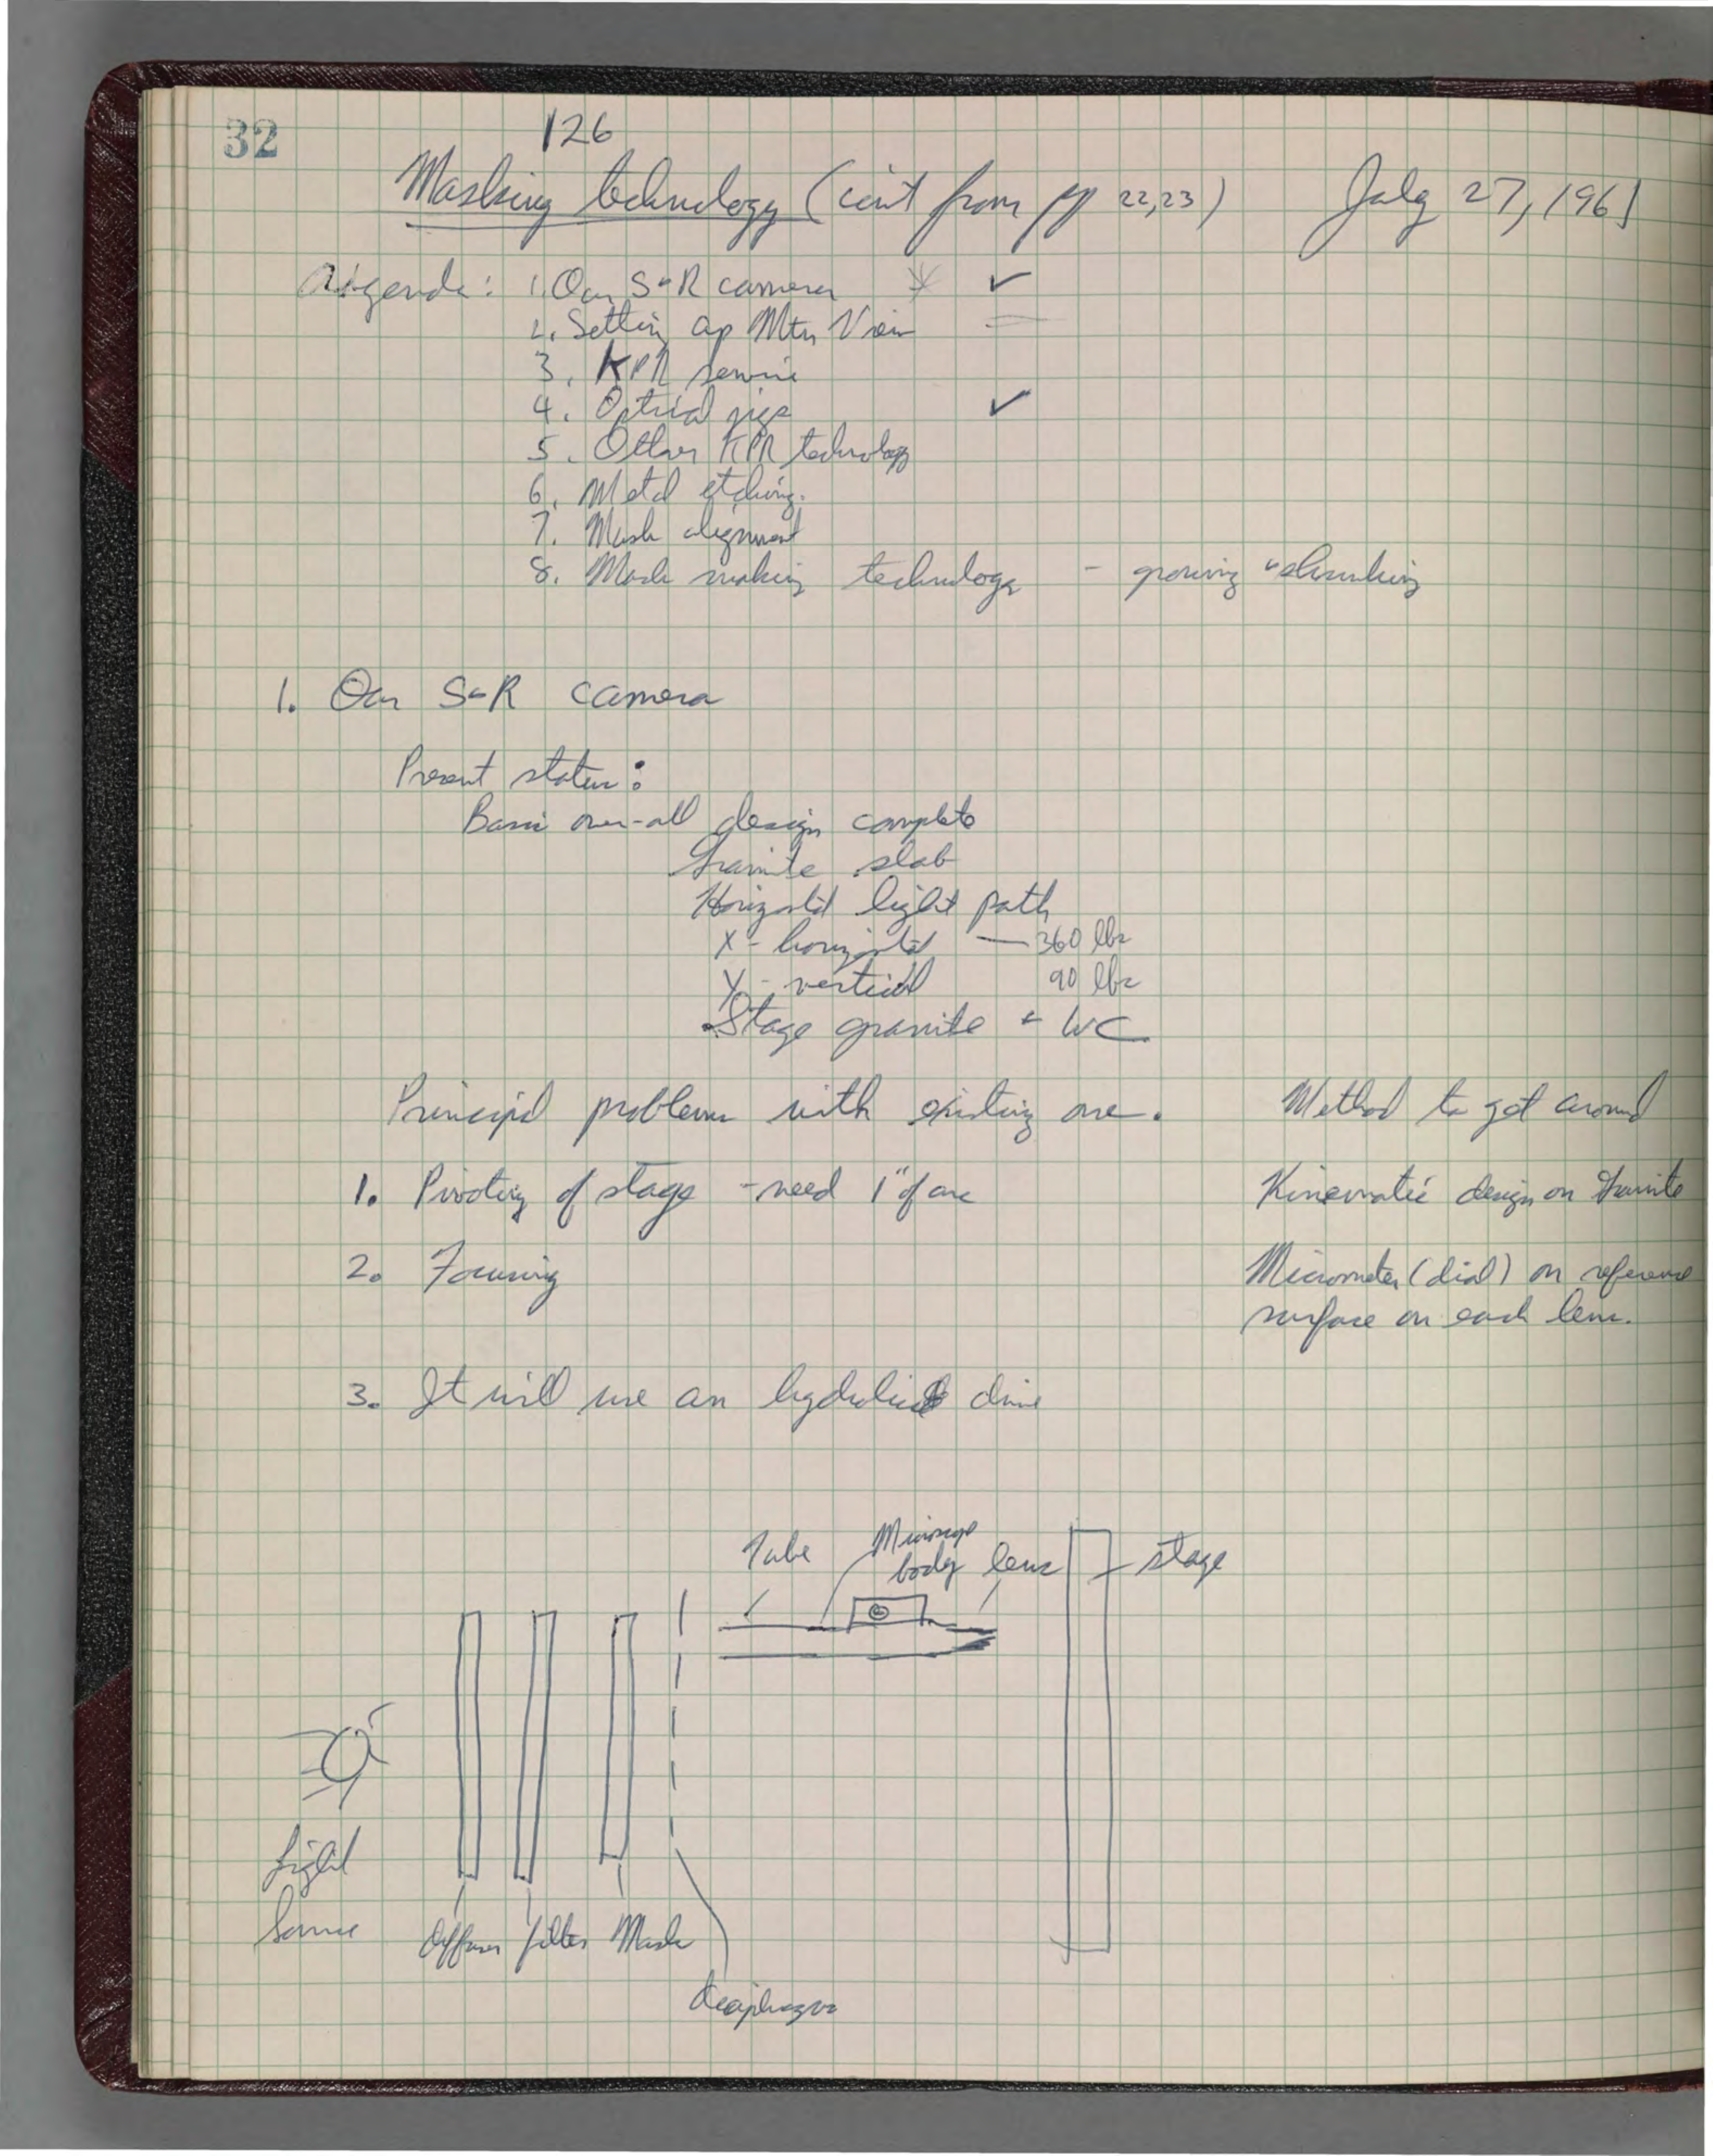 32
126
Masking technology (cont from pp 22,23) July 27, 1961
Agenda: 1. Our S&R camera ✓
2. Setting up Mtn View
3. KPR service
4. Optical jigs ✓
5. Other KPR technology
6. Metal etching.
7. Mask alignment
8. Mask making technology - growing & shrinking
1. Our S&R camera
Present status:
Basic over-all design complete
Granite slab
Horizontal light path
X - horizontal — 360 lbs
Y - vertical 90 lbs
Stage granite & WC
Principal problems with existing one. Method to get around
1. Pivoting of stage - need 1" of arc Kinematic design on Granite
2. Focusing Micrometer (dial) on reference
surface on each lens.
3. It will use an drive
Tube Microscope
body lens stage
Light
Source
Diffuser filter Mask
diaphragm